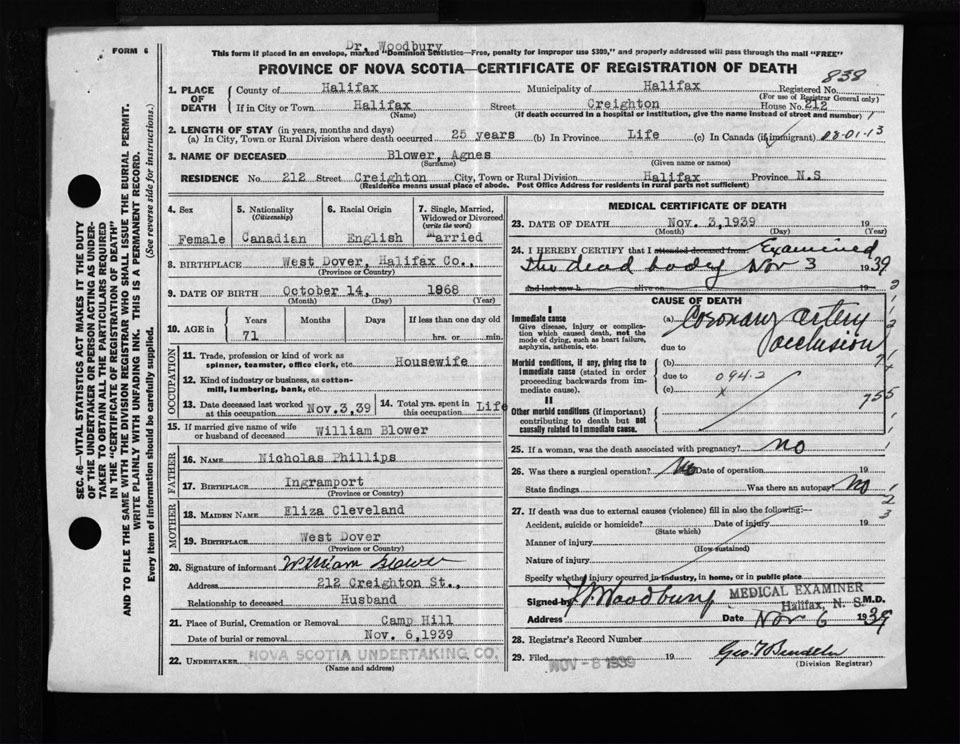 FORM 6
Dr. Woodbury
This form if placed in an envelope, marked "Dominion Statistics—Free, penalty for improper use $300," and properly addressed will pass through the mail "FREE"
PROVINCE OF NOVA SCOTIA—CERTIFICATE OF REGISTRATION OF DEATH
838
1. PLACE OF DEATH
County of Halifax Municipality of Halifax Registered No.
(For use of Registrar General only)
If in City or Town Halifax Street Creighton House No. 212
(Name) (If death occurred in a hospital or institution, give the name instead of street and number)
2. LENGTH OF STAY (in years, months and days)
(a) In City, Town or Rural Division where death occurred 25 years (b) In Province Life (c) In Canada (if immigrant) 08-01-13
3. NAME OF DECEASED Blower, Agnes
(Surname) (Given name or names)
RESIDENCE No. 212 Street Creighton City, Town or Rural Division Halifax Province N.S
(Residence means usual place of abode. Post Office Address for residents in rural parts not sufficient)
4. Sex
Female
5. Nationality
(Citizenship)
Canadian
6. Racial Origin
English
7. Single, Married, Widowed or Divorced
(write the word)
Married
8. BIRTHPLACE West Dover, Halifax Co.,
(Province or Country)
9. DATE OF BIRTH October 14, 1868
(Month) (Day) (Year)
10. AGE in
Years Months Days If less than one day old
71 hrs. or min.
OCCUPATION
11. Trade, profession or kind of work as spinner, teamster, office clerk, etc. Housewife
12. Kind of industry or business, as cotton-mill, lumbering, bank, etc.
13. Date deceased last worked at this occupation Nov.3,39
14. Total yrs. spent in this occupation Life
15. If married give name of wife or husband of deceased William Blower
FATHER
16. NAME Nicholas Phillips
17. BIRTHPLACE Ingramport
(Province or Country)
MOTHER
18. MAIDEN NAME Eliza Cleveland
19. BIRTHPLACE West Dover
(Province or Country)
20. Signature of informant William Blower
Address 212 Creighton St.,
Relationship to deceased Husband
21. Place of Burial, Cremation or Removal Camp Hill
Date of burial or removal Nov. 6,1939
22. UNDERTAKER NOVA SCOTIA UNDERTAKING CO.
(Name and address)
MEDICAL CERTIFICATE OF DEATH
23. DATE OF DEATH Nov. 3,1939 19
(Month) (Day) (Year)
24. I HEREBY CERTIFY that I attended deceased from Examined
the dead body Nov 3 1939
and last saw h alive on 19
CAUSE OF DEATH
I
Immediate cause
Give disease, injury or complication which caused death, not the mode of dying, such as heart failure, asphyxia, asthenia, etc.
(a) Coronary artery
occlusion
due to
Morbid conditions, if any, giving rise to immediate cause (stated in order proceeding backwards from immediate cause).
(b)
due to 094.2
(c) x
755
II
Other morbid conditions (if important) contributing to death but not causally related to immediate cause.
25. If a woman, was the death associated with pregnancy? no
26. Was there a surgical operation? No Date of operation 19
State findings Was there an autopsy? no
27. If death was due to external causes (violence) fill in also the following:—
Accident, suicide or homicide? Date of injury 19
(State which)
Manner of injury
(How sustained)
Nature of injury
Specify whether injury occurred in industry, in home, or in public place
Signed by Woodbury M.D.
MEDICAL EXAMINER
Halifax, N. S.
Address Date Nov 6 1939
28. Registrar's Record Number
29. Filed NOV - 6 1939 19
(Division Registrar)
SEC. 46—VITAL STATISTICS ACT MAKES IT THE DUTY
OF THE UNDERTAKER OR PERSON ACTING AS UNDER-
TAKER TO OBTAIN ALL THE PARTICULARS REQUIRED
IN THE "CERTIFICATE OF REGISTRATION OF DEATH"
AND TO FILE THE SAME WITH THE DIVISION REGISTRAR WHO SHALL ISSUE THE BURIAL PERMIT.
WRITE PLAINLY WITH UNFADING INK. THIS IS A PERMANENT RECORD.
Every item of information should be carefully supplied. (See reverse side for instructions.)